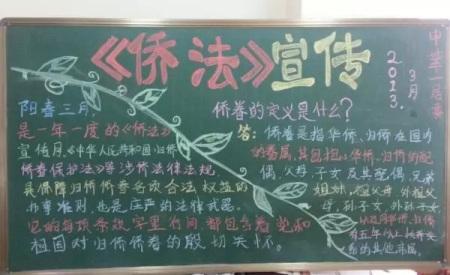 《侨法》宣传
2013.3月
中
一居委
阳春三月,
是一年一度的《侨法》
宣传月。《中华人民共和国归侨
侨眷保护法》等涉侨法律法规
具保障归侨侨眷各项合法权益的
办事准则,也是庄严的法律武器。
它的每项条款字里行间都包含着党和
祖国对归侨侨眷的殷切关怀。
侨眷的定义是什么?
答:侨眷是指华侨、归侨在国内
的眷属,其包括:华侨、归侨的配
偶,父母,子女及其配偶,兄弟
姐妹,祖父母,外祖父
母,孙子女,外孙子女,
以及同华侨、归侨
有五年以上扶养关
系的其他亲属。